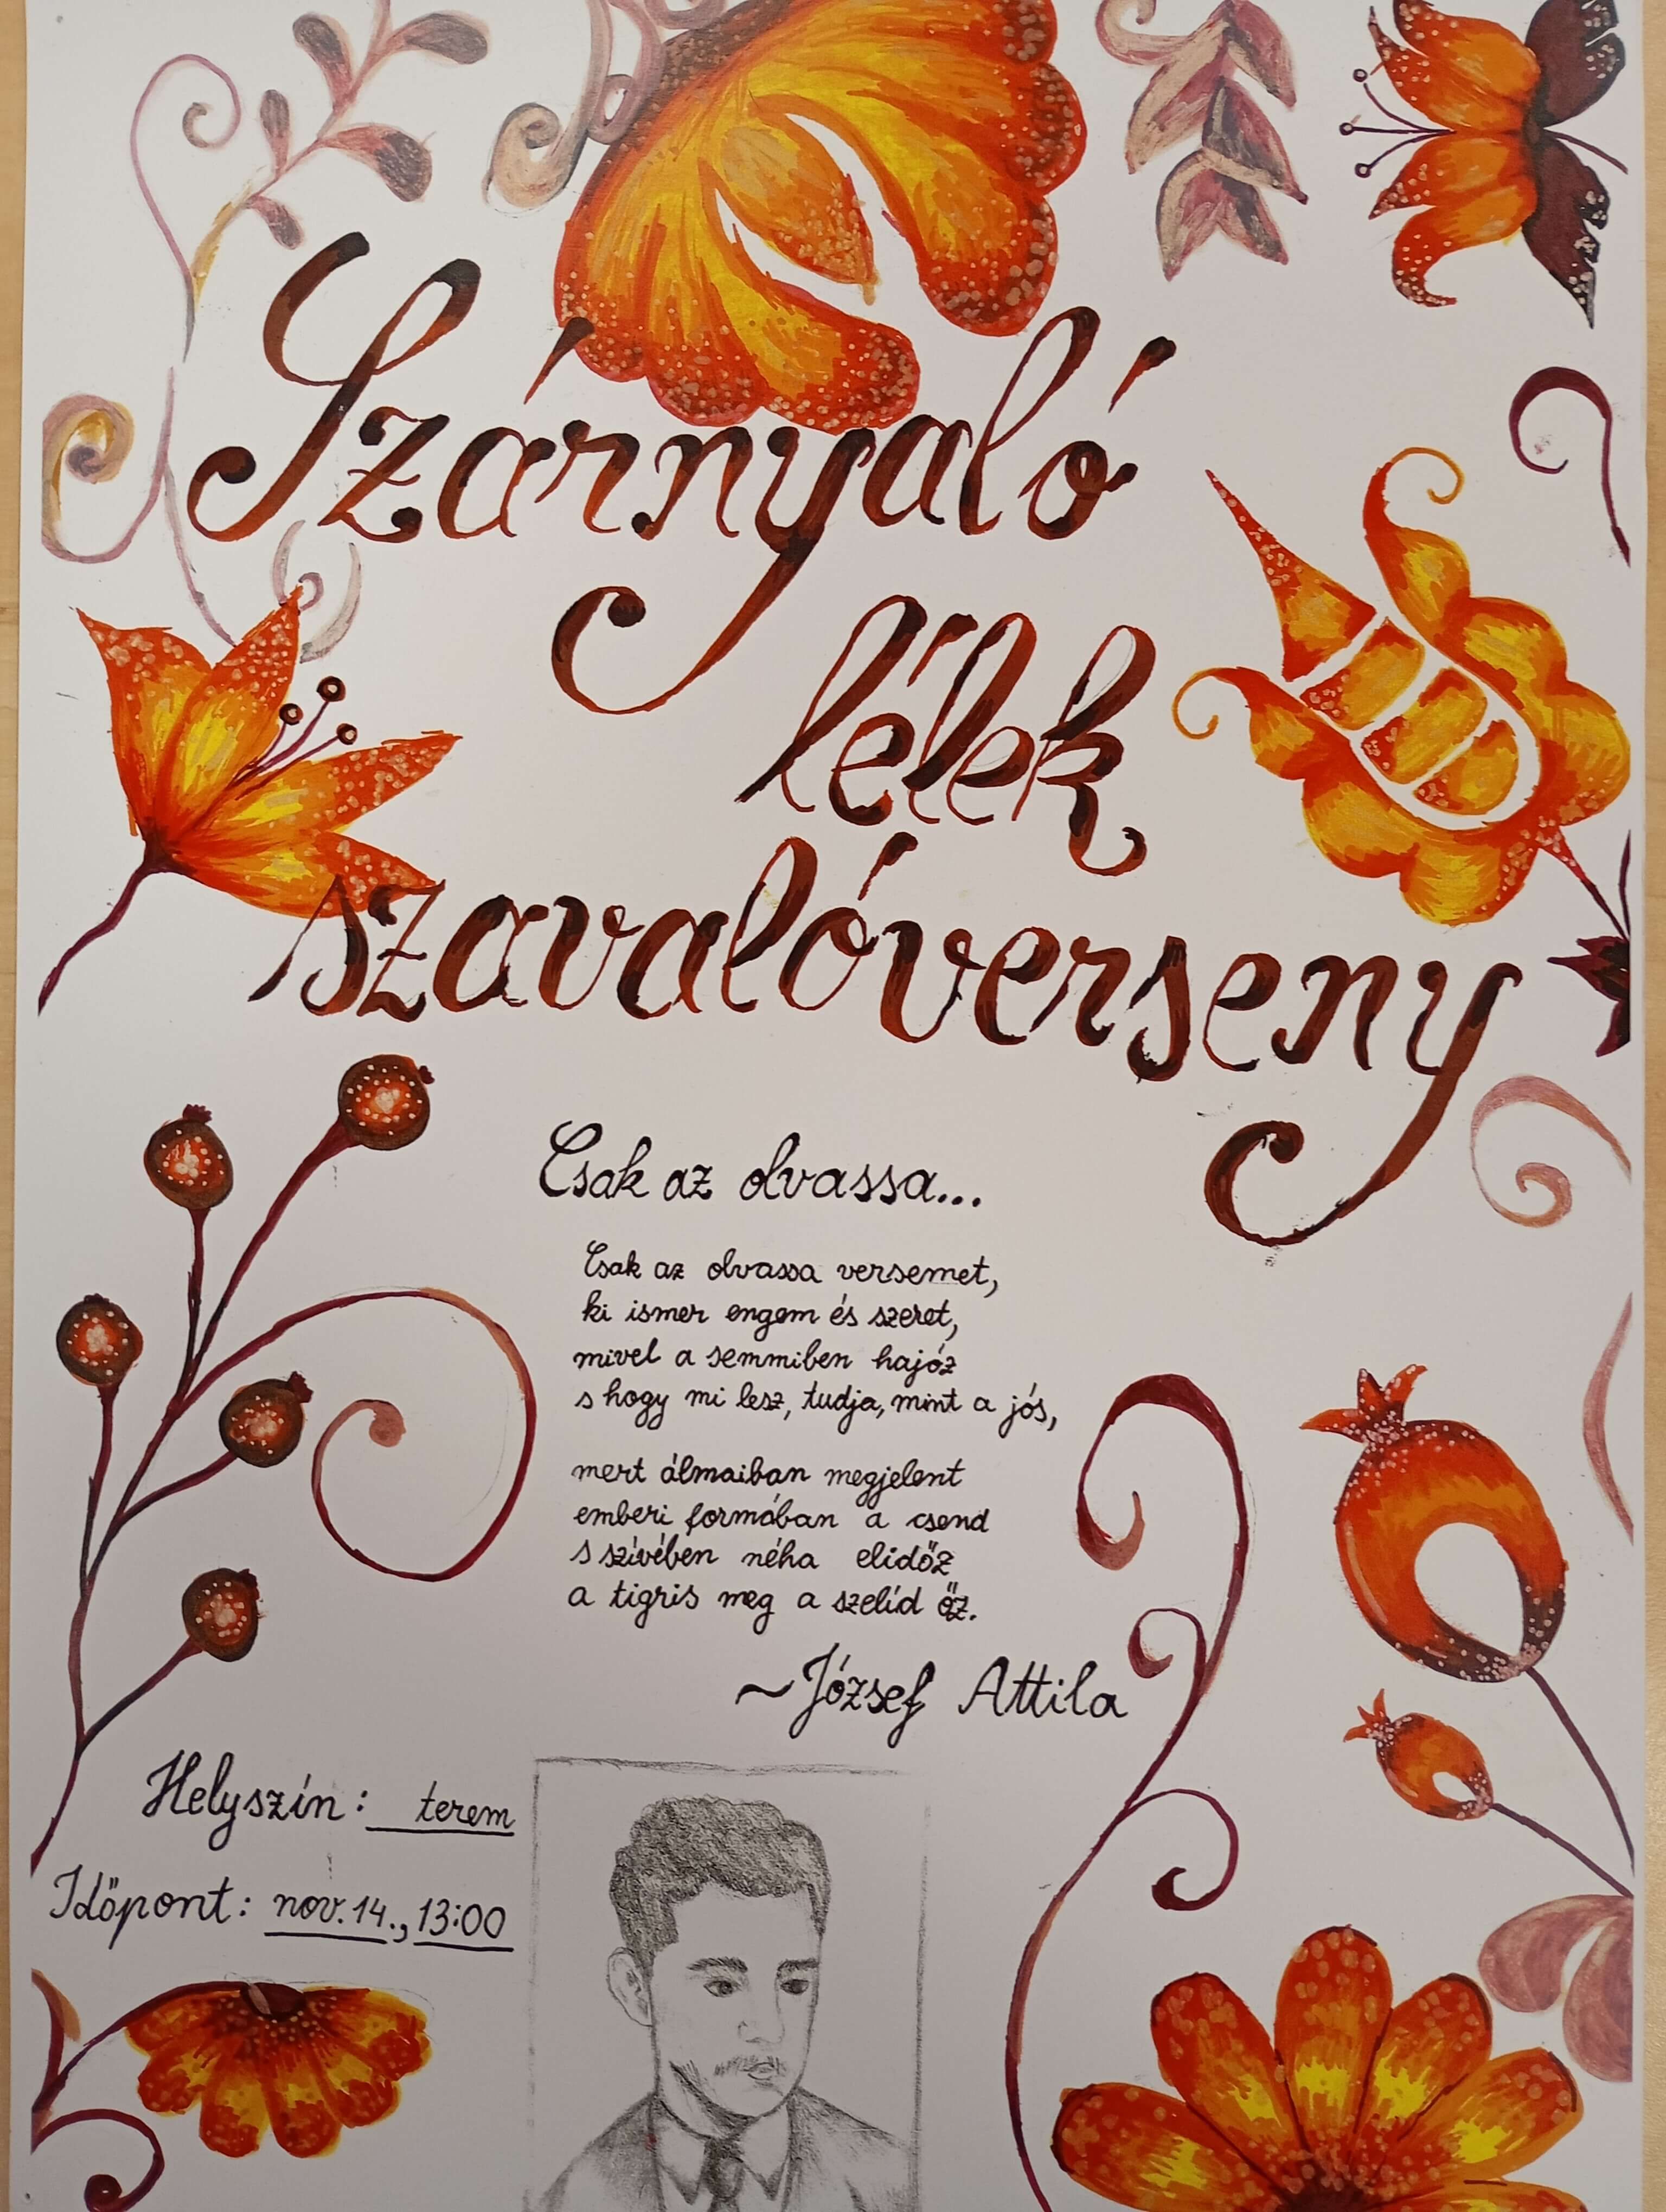 Szárnyaló
lélek
szavalóverseny
Csak az olvassa...
Csak az olvassa versemet,
ki ismer engem és szeret,
mivel a semmiben hajóz
s hogy mi lesz, tudja, mint a jós,
mert álmaiban megjelent
emberi formában a csend
s szívében néha elidőz
a tigris meg a szelíd őz.
~József Attila
Helyszín: terem
Időpont: nov. 14., 13:00